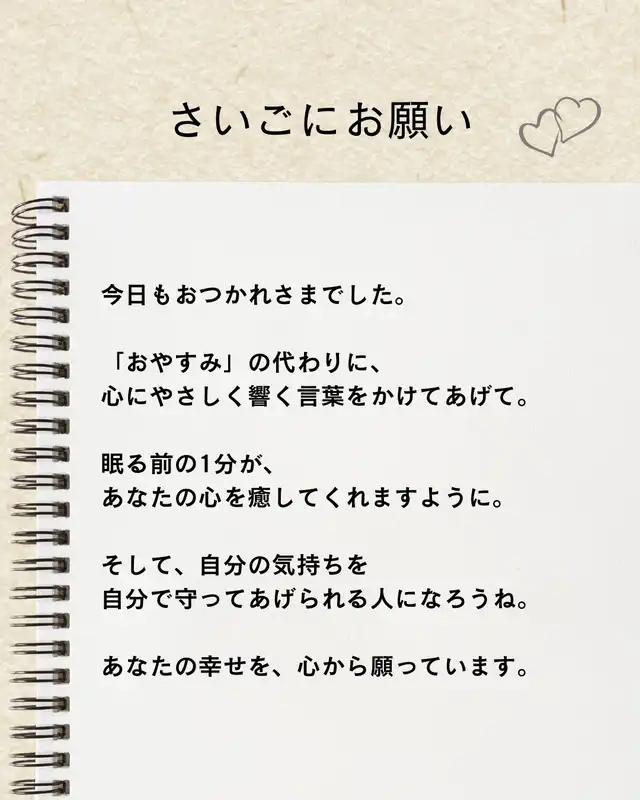 さいごにお願い
今日もおつかれさまでした。
「おやすみ」の代わりに、
心にやさしく響く言葉をかけてあげて。
眠る前の1分が、
あなたの心を癒してくれますように。
そして、自分の気持ちを
自分で守ってあげられる人になろうね。
あなたの幸せを、心から願っています。